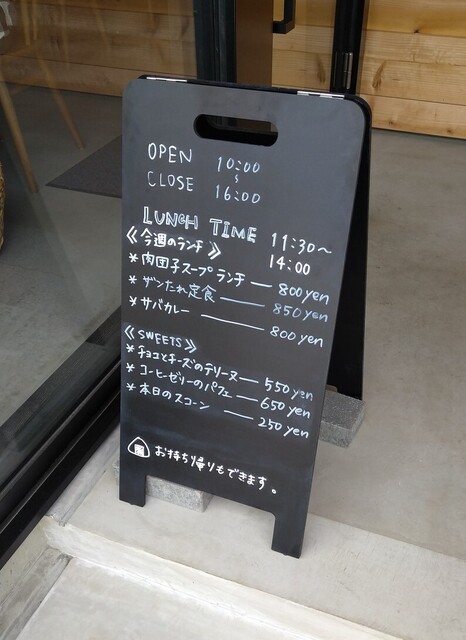 OPEN 10:00
～
CLOSE 16:00
LUNCH TIME 11:30～
14:00
《今週のランチ》
* 肉団子スープランチ — 800yen
* ザンたれ定食 — 850yen
* サバカレー — 800yen
《SWEETS》
* チョコとチーズのテリーヌ — 550yen
* コーヒーゼリーのパフェ — 650yen
* 本日のスコーン — 250yen
お持ち帰りもできます。